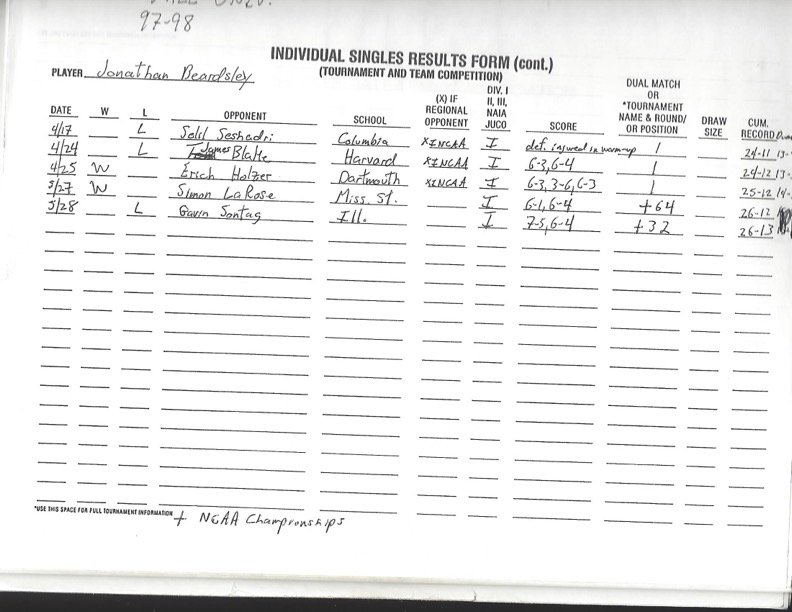 97-98
INDIVIDUAL SINGLES RESULTS FORM (cont.)
(TOURNAMENT AND TEAM COMPETITION)
PLAYER Jonathan Beardsley
DATE W L OPPONENT SCHOOL (X) IF REGIONAL OPPONENT DIV. I II, III, NAIA JUCO SCORE DUAL MATCH OR *TOURNAMENT NAME & ROUND/ OR POSITION DRAW SIZE CUM. RECORD
4/17 L Salil Seshadri Columbia XINCAA I def. injured in warm-up 1 24-11
4/24 L James Blake Harvard XINCAA I 6-3, 6-4 1 24-12
4/25 W Erich Holzer Dartmouth XINCAA I 6-3, 3-6, 6-3 1 25-12
5/27 W Simon LaRose Miss. St. I 6-1, 6-4 +64 26-12
5/28 L Gavin Sontag Ill. I 7-5, 6-4 +32 26-13
*USE THIS SPACE FOR FULL TOURNAMENT INFORMATION + NCAA Championships